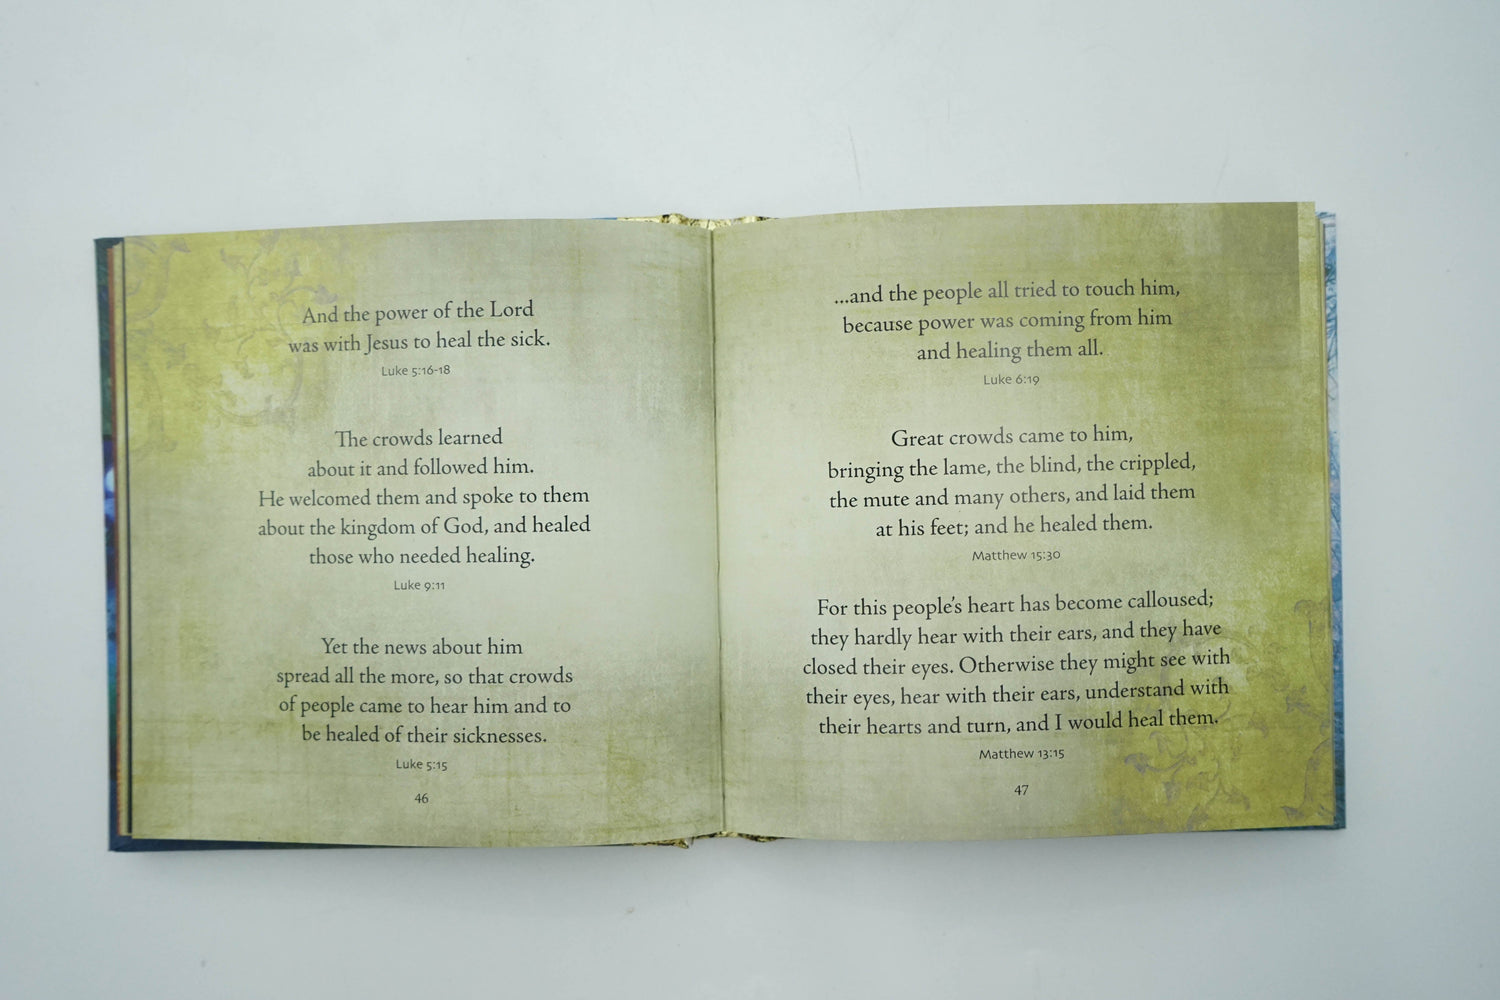 And the power of the Lord
was with Jesus to heal the sick.
Luke 5:16-18
The crowds learned
about it and followed him.
He welcomed them and spoke to them
about the kingdom of God, and healed
those who needed healing.
Luke 9:11
Yet the news about him
spread all the more, so that crowds
of people came to hear him and to
be healed of their sicknesses.
Luke 5:15
46
...and the people all tried to touch him,
because power was coming from him
and healing them all.
Luke 6:19
Great crowds came to him,
bringing the lame, the blind, the crippled,
the mute and many others, and laid them
at his feet; and he healed them.
Matthew 15:30
For this people's heart has become calloused;
they hardly hear with their ears, and they have
closed their eyes. Otherwise they might see with
their eyes, hear with their ears, understand with
their hearts and turn, and I would heal them.
Matthew 13:15
47